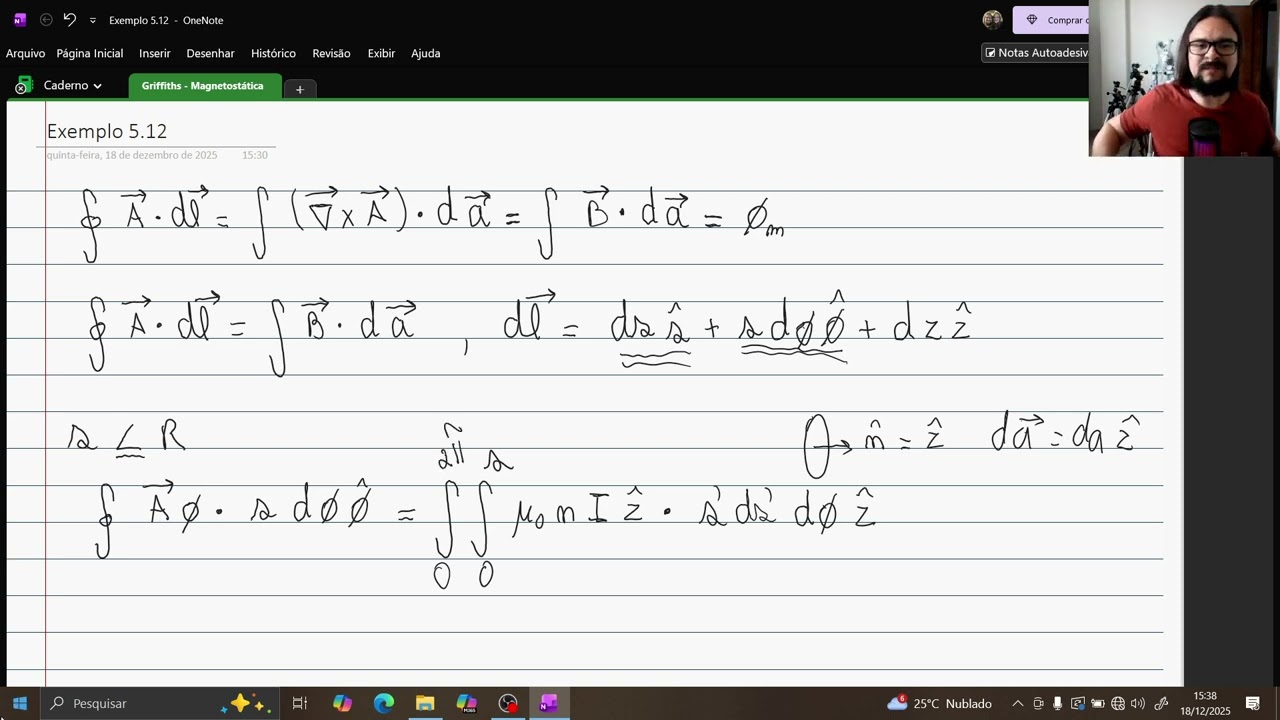 Exemplo 5.12 - OneNote
Comprar
Arquivo Página Inicial Inserir Desenhar Histórico Revisão Exibir Ajuda
Notas Autoadesiv
Caderno
Griffiths - Magnetostática
+
Exemplo 5.12
quinta-feira, 18 de dezembro de 2025 15:30
∮ A⃗ · dl⃗ = ∫ (∇⃗ x A⃗) · da⃗ = ∫ B⃗ · da⃗ = ϕₘ
∮ A⃗ · dl⃗ = ∫ B⃗ · da⃗ , dl⃗ = ds ŝ + s dϕ ϕ̂ + dz ẑ
s ≤ R
n̂ = ẑ da⃗ = da ẑ
∮ A⃗ϕ · s dϕ ϕ̂ = ∫₀^2π ∫₀^s μ₀ n I ẑ · s' ds' dϕ ẑ
Pesquisar
M365
6
25°C Nublado
15:38
18/12/2025